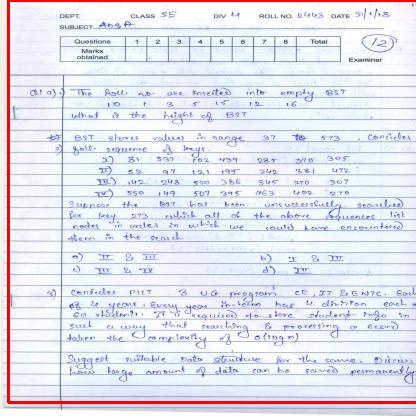 DEPT. CLASS SE DIV 4 ROLL NO. 2443 DATE 31/1/18
SUBJECT
Questions 1 2 3 4 5 6 7 8 Total
Marks obtained
12
Examiner
Q1 a) The Roll no. are inserted into empty BST
10 1 3 5 15 12 16
what is the height of BST
2) BST stores values in range 37 to 573. Consider
foll. sequence of keys.
I) 81 537 102 439 285 376 305
II) 52 97 121 195 242 381 472
III) 142 248 520 386 345 270 307
IV) 550 149 507 395 463 402 270
Suppose the BST has been unsuccessfully searched
for key 273 which all of the above sequences list
nodes in order in which we could have encountered
them in the search
a) II & III b) I & III
c) III & IV d) III
3) Consider PICT 3 UG program CE, IT & ENTC. Each
of 4 years. Every year in-term has 4 division each of
60 students. It is required to store student info in
such a way that searching & processing a record
taken the complexity of O(log n)
Suggest suitable Data structure for the same. Discuss
how large amount of data can be saved permanently